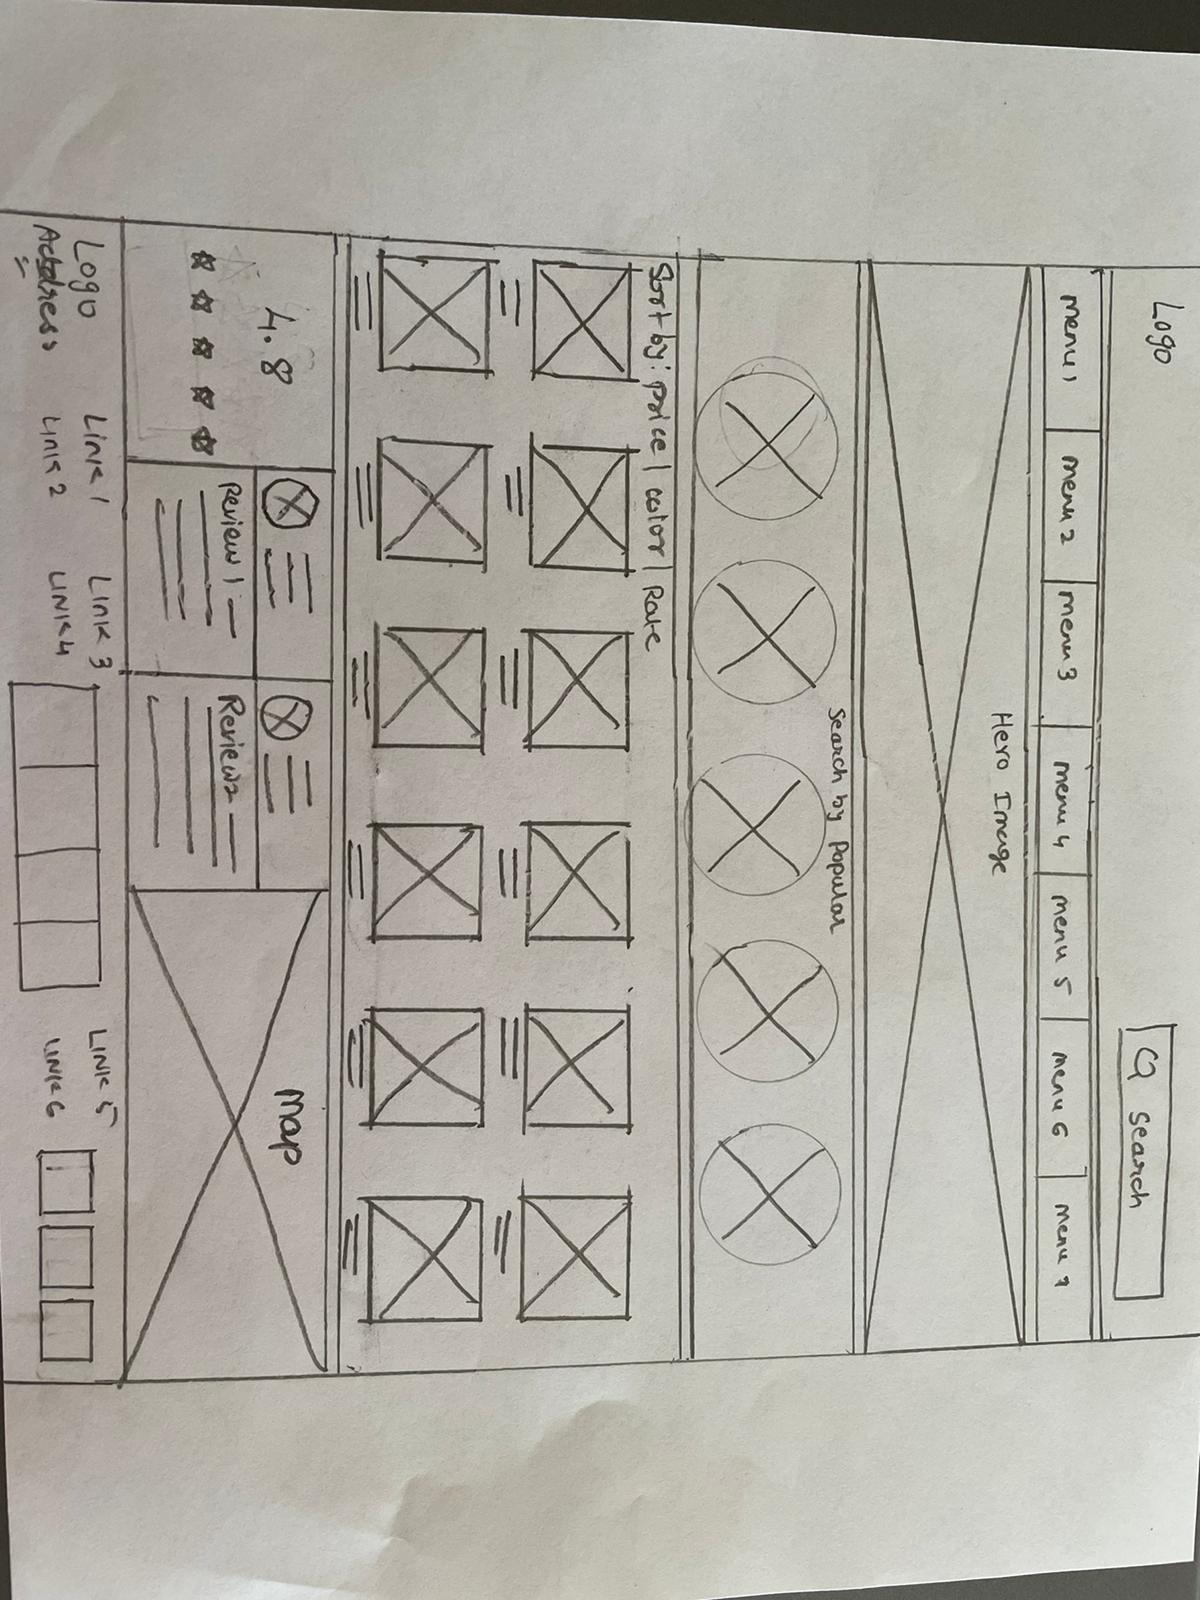 Logo
search
menu 1 menu 2 menu 3 menu 4 menu 5 menu 6 menu 7
Hero Image
Search by Popular
Sort by: price | color | Rate
4.8
Review 1
Review 2
map
Logo
Address
Link 1
Link 2
Link 3
Link 4
Link 5
Link 6